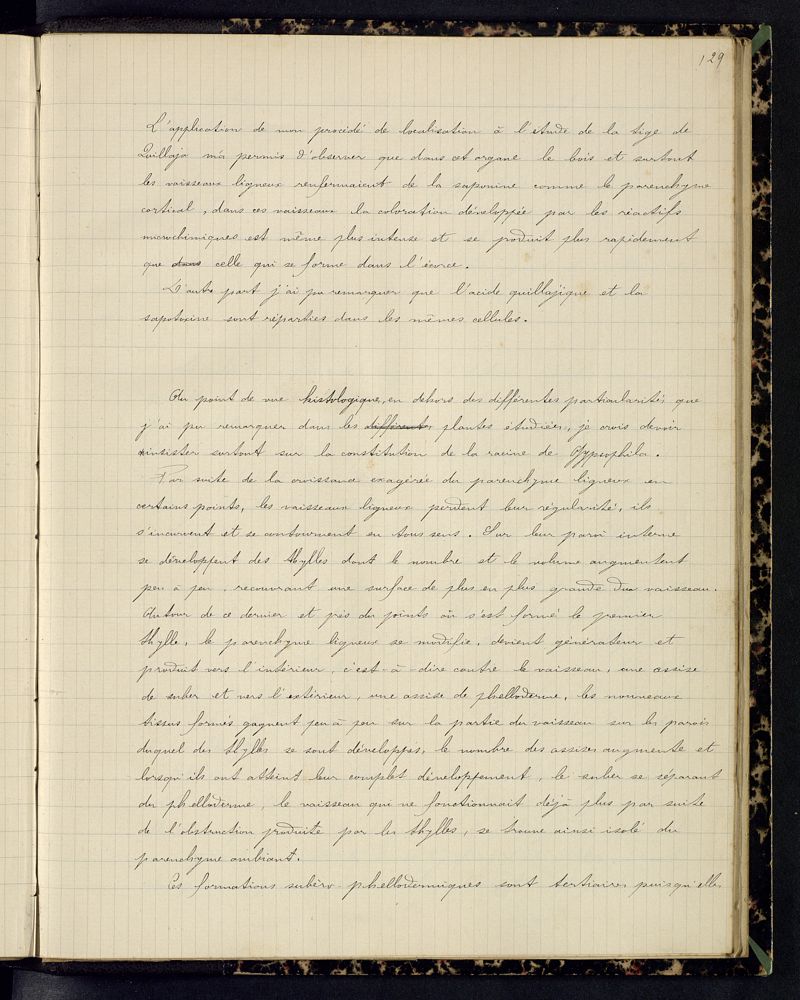 129
L'application de mon procédé de localisation à l'étude de la tige de
Quillaja m'a permis d'observer que dans cet organe le bois et surtout
les vaisseaux ligneux renfermaient de la saponine comme le parenchyme
cortical, dans ces vaisseaux la coloration développée par les réactifs
microchimiques est même plus intense et se produit plus rapidement
que dans celle qui se forme dans l'écorce.
D'autre part j'ai pu remarquer que l'acide quillajique et la
sapotoxine sont réparties dans les mêmes cellules.
Au point de vue histologique, en dehors des différentes particularités que
j'ai pu remarquer dans les différentes plantes étudiées, je crois devoir
insister surtout sur la constitution de la racine de Gypsophila.
Par suite de la croissance exagérée du parenchyme ligneux en
certains points, les vaisseaux ligneux perdent leur régularité, ils
s'incurvent et se contournent en tous sens. Sur leur paroi interne
se développent des thylles dont le nombre et le volume augmentent
peu à peu, recouvrant une surface de plus en plus grande du vaisseau.
Autour de ce dernier et près du points où s'est formé le premier
thylle, le parenchyme ligneux se modifie, devient générateur et
produit vers l'intérieur, c'est-à-dire contre le vaisseau, une assise
de suber et vers l'extérieur, une assise de phelloderme, les nouveaux
tissus formés gagnent peu à peu sur la partie du vaisseau sur les parois
duquel des thylles se sont développés, le nombre des assises augmente et
lorsqu'ils ont atteint leur complet développement, le suber se séparant
du phelloderme, le vaisseau qui ne fonctionnait déjà plus par suite
de l'obstruction produite par les thylles, se trouve ainsi isolé du
parenchyme ambiant.
Ces formations subéro-phellodermiques sont tertiaires puisqu'elles